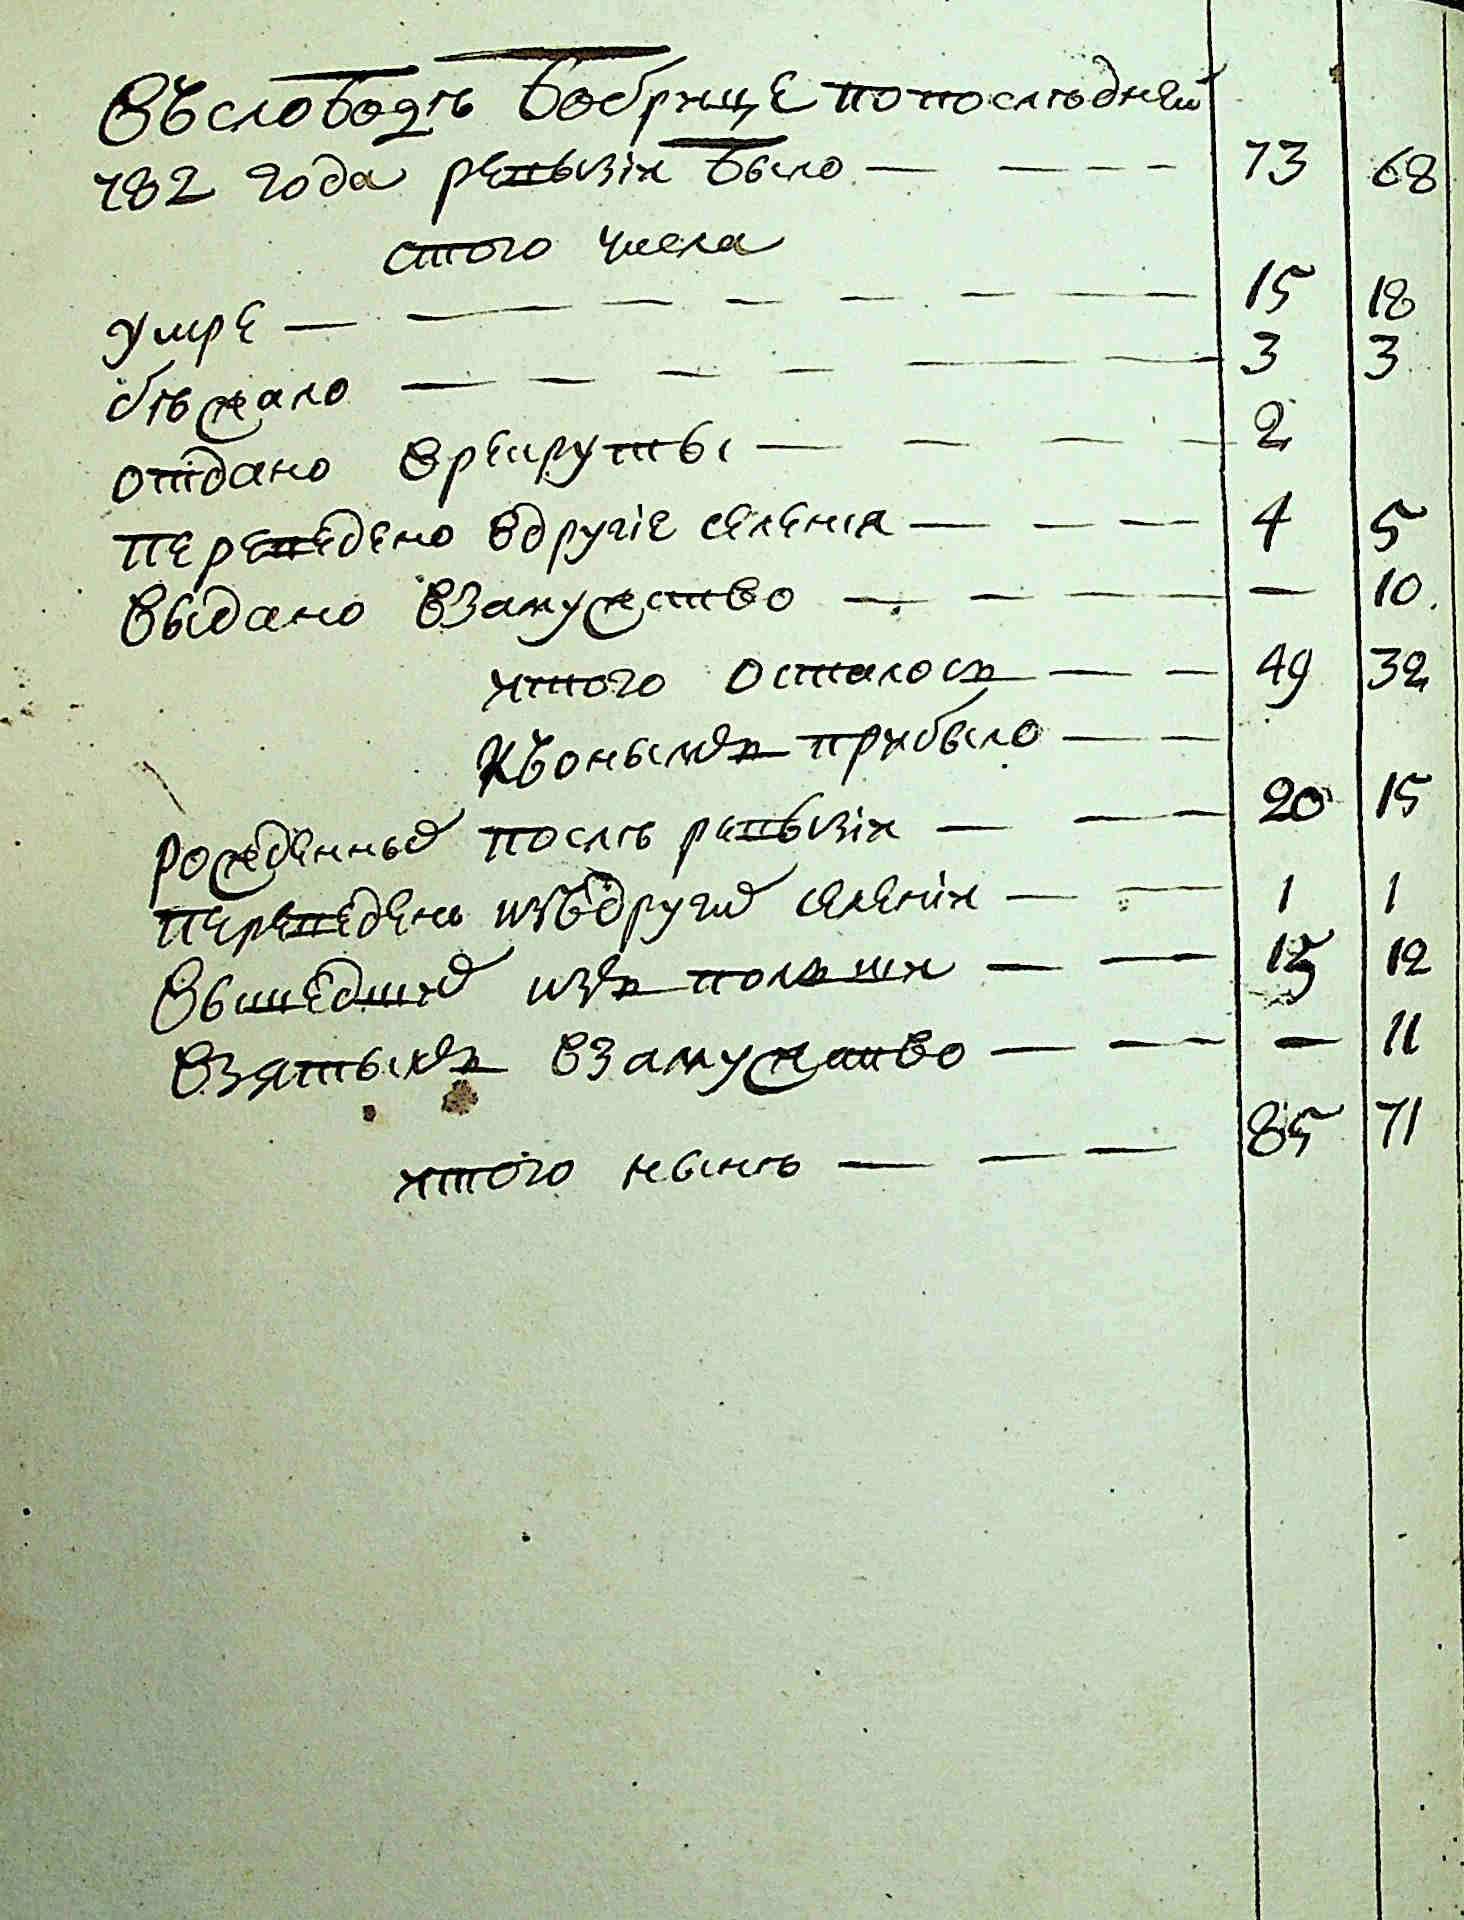 Въ слободѣ бобрице по последней 73 68
782 года ревизіи было — — — — —
стого числа
умре — — — — — — — 15 18
бѣжало — — — — — — 3 3
отдано врекруты — — — — 2
переведено вдругіе селенія — — — 4 5
выдано взамужство — — — — — 10.
итого осталось — — 49 32
Къ онымъ прибыло — —
рожденныхъ послѣ ревизіи — — — 20 15
переведено изъ другихъ селеніи — — 1 1
вышедшихъ изъ польши — — 15 12
взятыхъ взамужство — — — — 11
итого нынѣ — — — 85 71